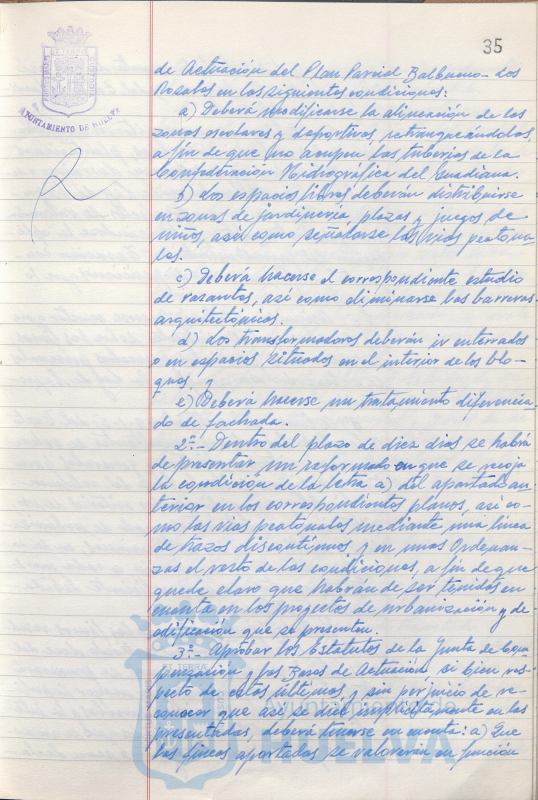 35
AYUNTAMIENTO DE HUELVA
de Actuación del Plan Parcial Balbueno-Los
Rosales en las siguientes condiciones:
a) Deberá modificarse la alineación de las
zonas escolares y deportivas, retranqueándolas,
a fin de que no ocupen las tuberías de la
Confederación Hidrográfica del Guadiana.
b) Los espacios libres deberán distribuirse
en zonas de jardinería, plazas y juegos de
niños, así como señalarse las vías peatona-
les.
c) Deberá hacerse el correspondiente estudio
de rasantes, así como eliminarse las barreras
arquitectónicas.
d) Los transformadores deberán ir enterrados
o en espacios situados en el interior de los blo-
ques. y
e) Deberá hacerse un tratamiento diferencia-
do de fachada.
2º.- Dentro del plazo de diez días se habrá
de presentar un reformado en que se recoja
la condición de la letra a) del apartado an-
terior en los correspondientes planos, así co-
mo las vías peatonales mediante una línea
de trazos discontinuos y en unas Ordenan-
zas el resto de las condiciones, a fin de que
quede claro que habrán de ser tenidas en
cuenta en los proyectos de urbanización y de
edificación que se presenten.
3º.- Aprobar los Estatutos de la Junta de Com-
pensación y las Bases de Actuación si bien res-
pecto de estas últimas y sin perjuicio de re-
conocer que así se dice implícitamente en las
presentadas, deberá tenerse en cuenta: a) Que
las fincas aportadas se valorarán en función